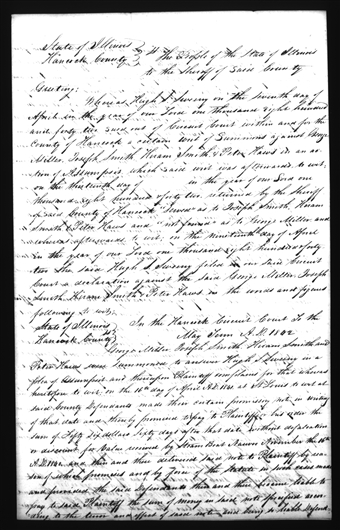 State of Illinois
Hancock County The People of the State of Illinois
to the Sheriff of said County
Greeting:
Whereas Hugh T. Ewing on the seventh day of
April in the year of our Lord one thousand eight hundred
and forty two sued out of Circuit Court within and for the
County of Hancock a certain writ of Summons against George
Miller, Joseph Smith Hiram Smith & Peter Haws in an ac
tion of Assumpsit, which said writ was afterwards to wit,
on the thirteenth day of in the year of our Lord one
thousand eight hundred forty two, returned by the Sheriff
of said County of Hancock "served" as to Joseph Smith, Hiram
Smith & Peter Haws and "not found" as to George Miller and
whereas afterwards to wit, on the nineteenth day of April
in the year of our Lord one thousand eight hundred forty
two the said Hugh T. Ewing filed in our said Circuit
Court a declaration against the said George Miller Joseph
Smith Hiram Smith & Peter Haws in the words and figures
following to wit:
State of Illinois In the Hancock Circuit Court To the
Hancock County May Term A.D. 1842
George Miller Joseph Smith Hiram Smith and
Peter Haws were summoned to answer Hugh T. Ewing in a
plea of assumpsit and thereupon Plaintiff complains for that whereas
heretofore to wit on the 10th day of April A.D. 1841 at St Louis to wit at
said County Defendants made their certain promissory note in writing
of that date and thereby promised to pay to Plaintiff
sum of Fifty Six dollars Sixty days after that date without defalcation
or discount for value received by
A.D. 1841 and then and there delivered said note to Plaintiff by
of which premises and by force of the Statute in such case made
and provided the said Defendants then and there became liable to
pay to said Plaintiff the sum of money in said note specified accor
ding to the tenor and effect of said note and being so liable Defend